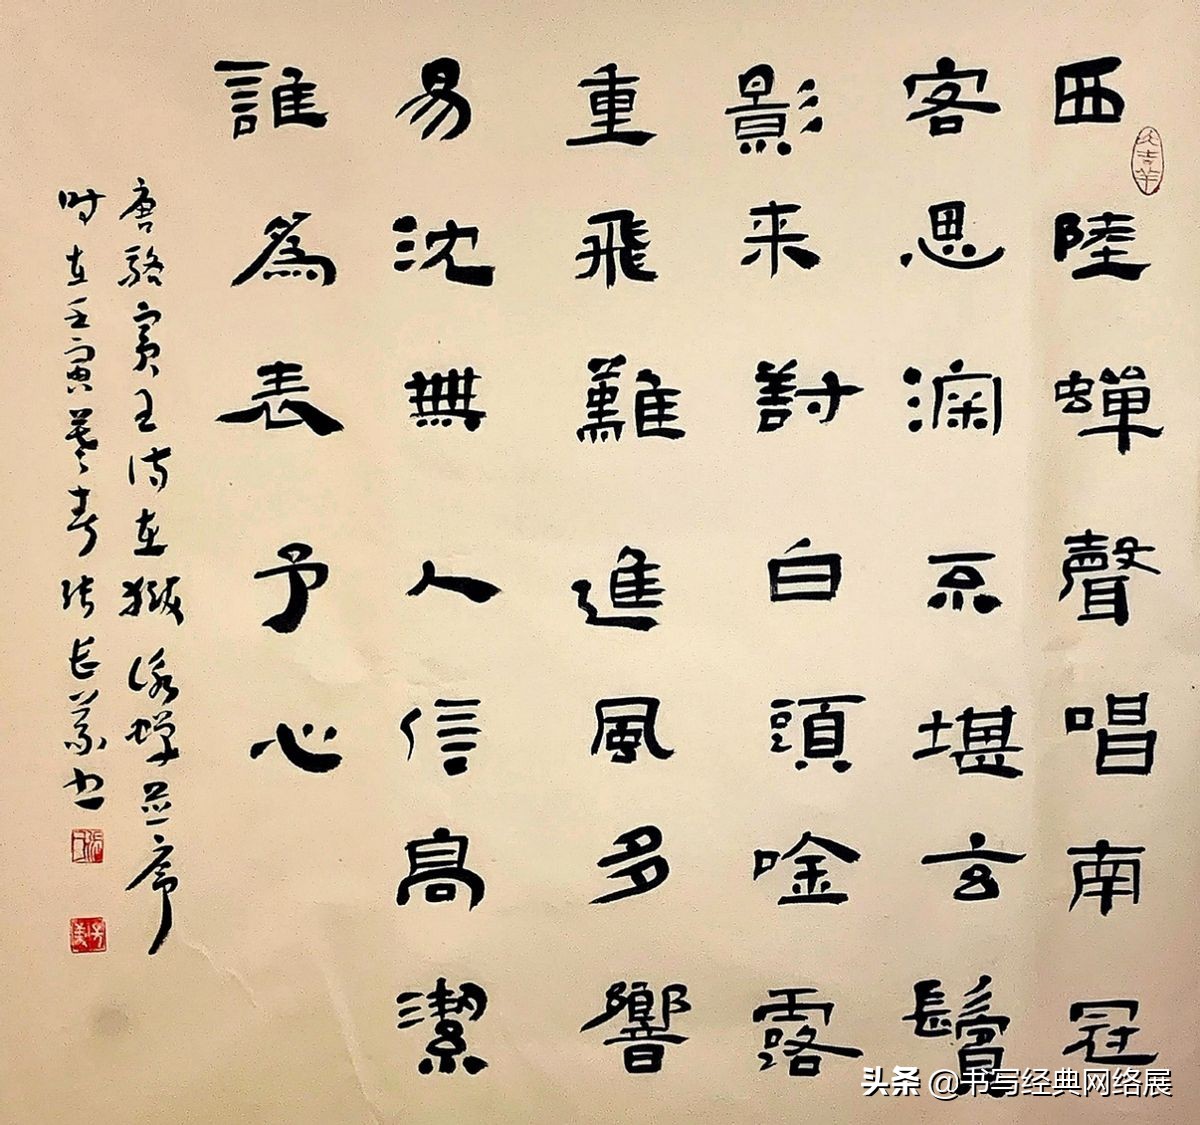 西陸蟬聲唱南冠
客思深不堪玄鬢
影来對白頭唫露
重飛難進風多響
易沈無人信高潔
誰為表予心
唐骆賓王诗在狱詠蝉并序
时在壬寅暮春张长义书
头条 @书写经典网络展